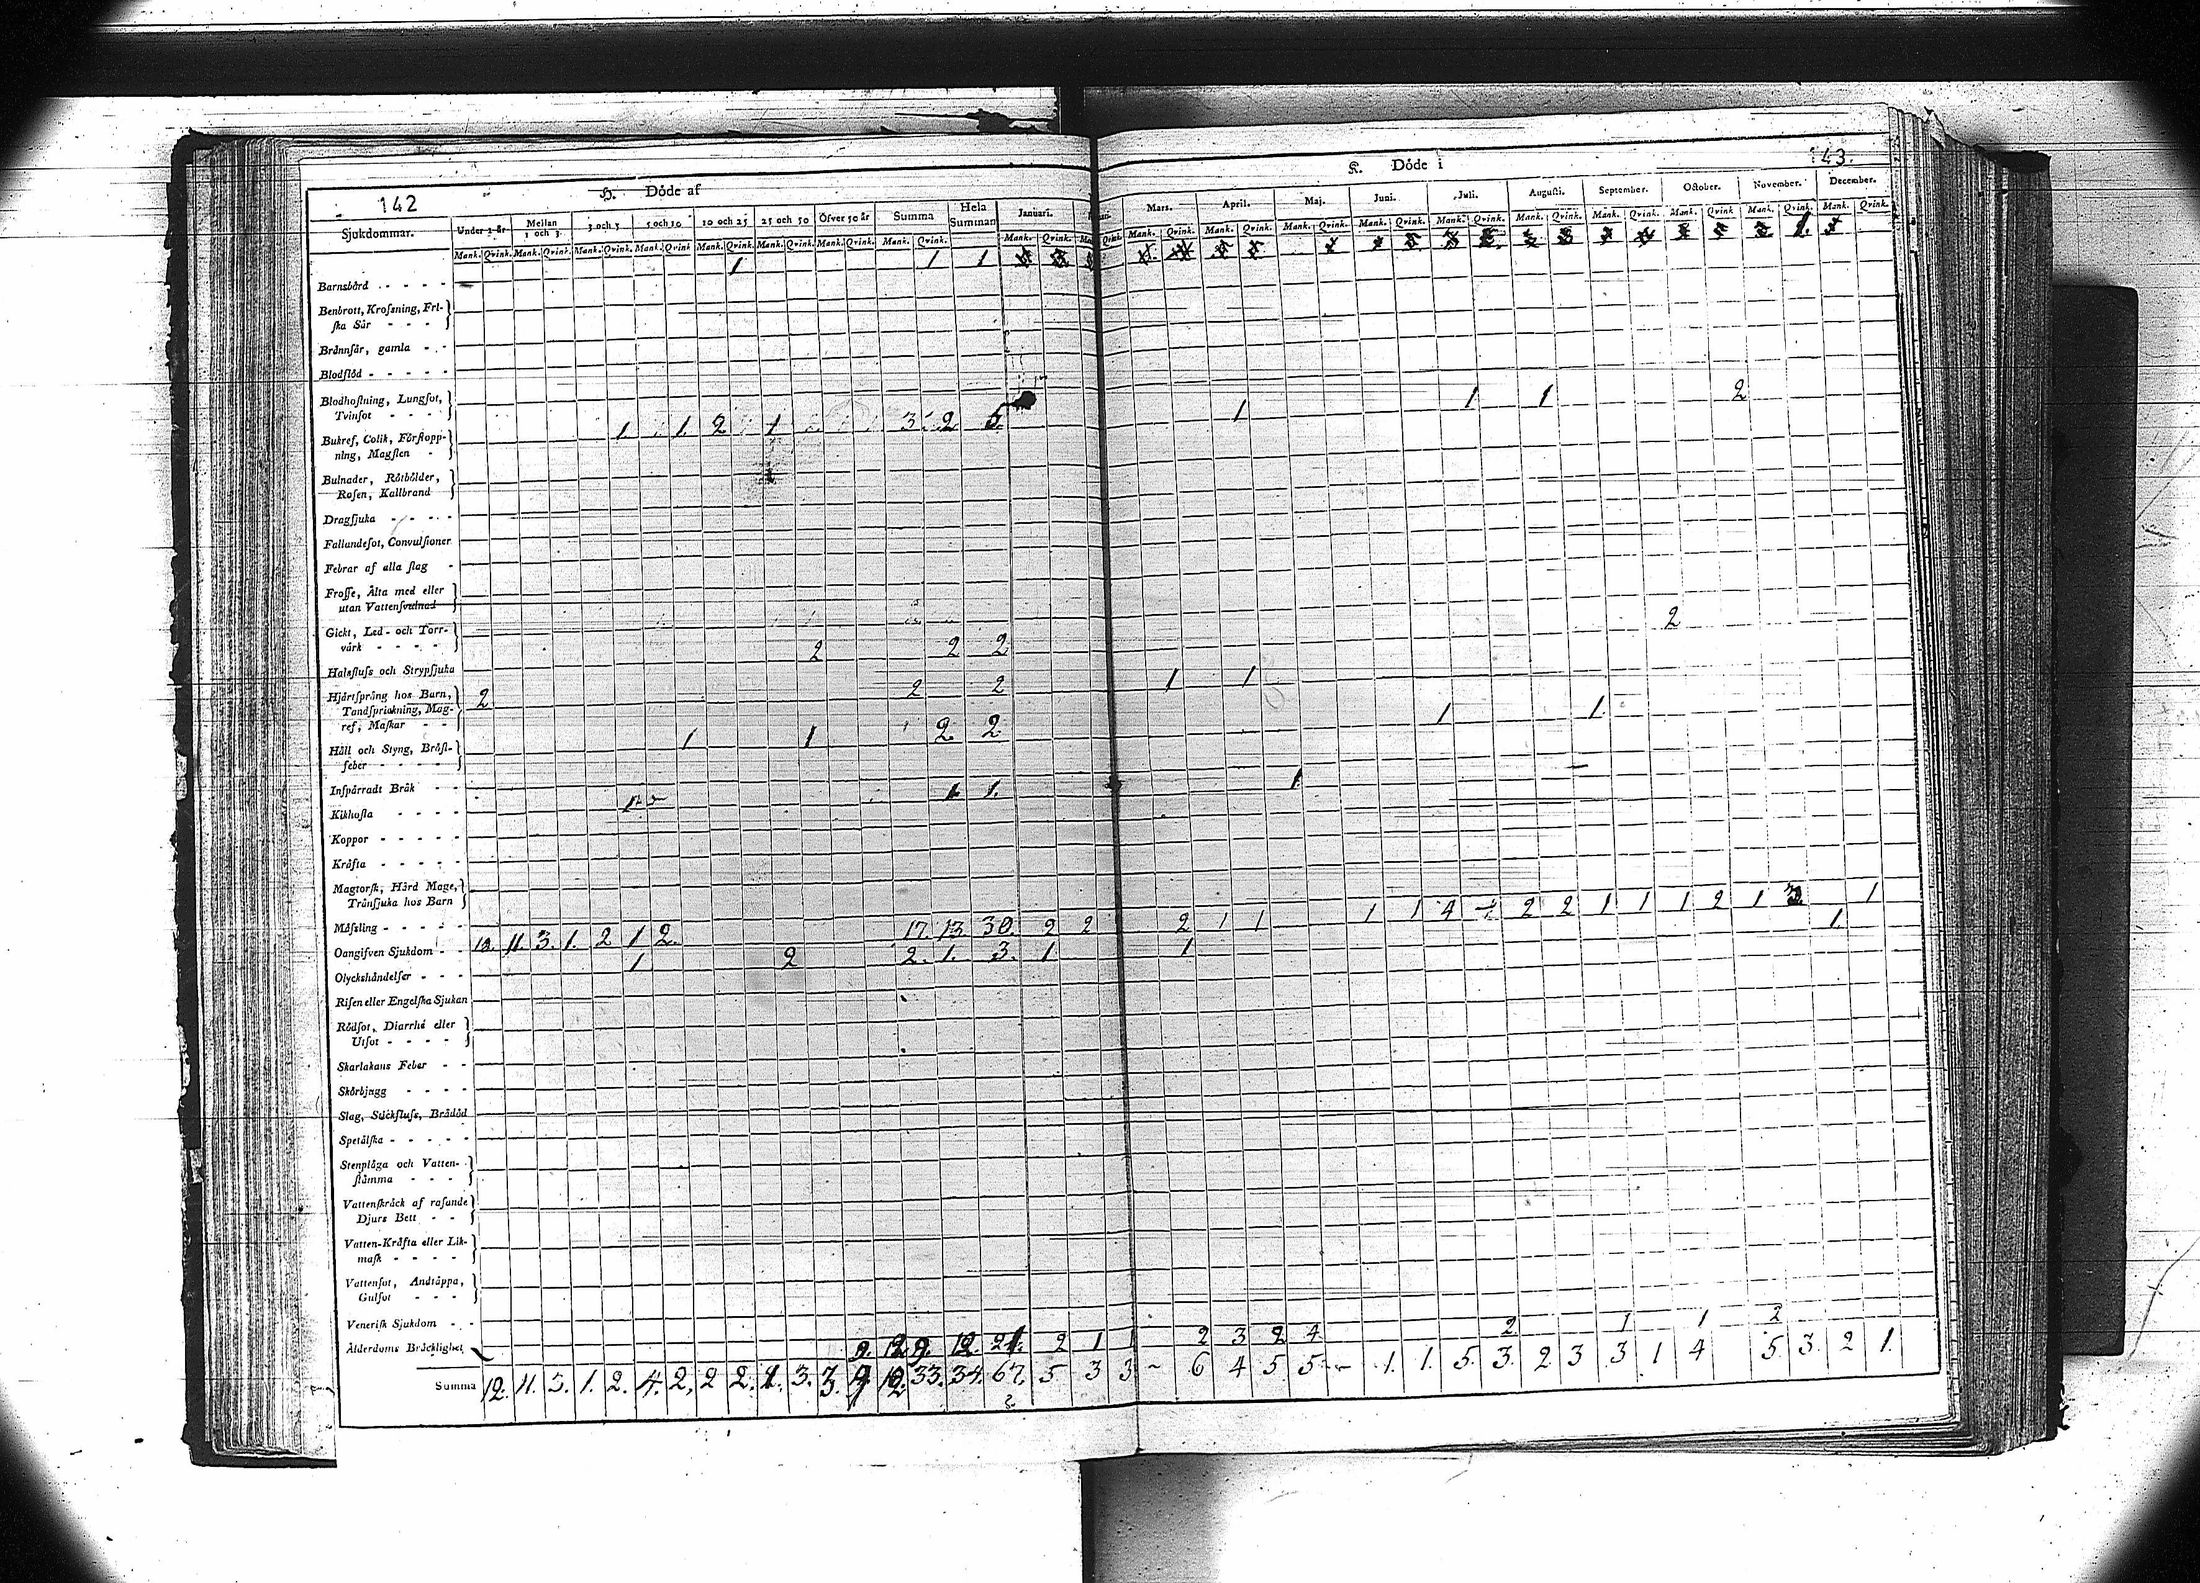 142
H. Döde af
K. Döde i
143.
Sjukdommar.
Under 1 år
Mellan 1 och 3.
3 och 5
5 och 10
10 och 25
25 och 50
Öfver 50 år
Summa
Hela Summan
Januari.
Mars.
April.
Maj.
Juni.
Juli.
Augusti.
September.
October.
November.
December.
Mank. Qvink. Mank. Qvink. Mank. Qvink. Mank. Qvink Mank. Qvink. Mank. Qvink. Mank. Qvink. Mank. Qvink. Mank. Qvink.
Mank. Qvink. Mank. Qvink. Mank. Qvink. Mank. Qvink. Mank. Qvink. Mank. Qvink. Mank. Qvink. Mank. Qvink Mank. Qvink. Mank. Qvink.
1 1 1
Barnsbörd
Benbrott, Krosning, Fri-
ska Sår
Brännsår, gamla
Blodflöd
Blodhostning, Lungsot,
Tvinsot
1 1 2 1 3 2 5 1 1 1 2
Bukref, Colik, Förstopp-
ning, Magsten
Bulnader, Rötbölder,
Rosen, Kallbrand
Dragsjuka
Fallandesot, Convulsioner
Febrar af alla slag
Frosse, Älta med eller
utan Vattensvulnad
Gickt, Led- och Torr-
värk
2 2 2 2
Halsfluss och Strypsjuka
2 2 2 1 1
Hjärtsprång hos Barn,
Tandsprickning, Mag-
ref, Maskar
1 1 2 2 1 1
Håll och Styng, Bröst-
feber
Inspärradt Bråk
1 1 1. 1
Kikhosta
Koppor
Kräfta
Magtorsk, Hård Mage,
Tränsjuka hos Barn
Mässling
12. 11. 3. 1. 2 1 2. 17. 13. 30. 2 2 2 1 1 1 1 4 1 2 2 1 1 1 2 1 1
Oangifven Sjukdom
1 2 2. 1. 3. 1. 1 1.
Olyckshändelser
Risen eller Engelska Sjukan
Rödsot, Diarrhé eller
Utsot
Skarlakans Feber
Skörbjugg
Slag, Stickfluss, Brådöd
Spetälska
Stenplåga och Vatten-
stämma
Vattenskräck af rasande
Djurs Bett
Vatten-Kräfta eller Lik-
mask
Vattensot, Andtäppa,
Gulsot
Venerisk Sjukdom
Ålderdoms Bräcklighet
9. 12 9. 12. 21. 2 1 1 2 3 2 4 2 1 1 2
Summa 12. 11. 3. 1. 2. 4. 2. 2 2. 3. 33. 34. 67. 5 3 3 6 4 5 5 1. 1. 5. 3. 2 3 3 1 4 5 3. 2 1.